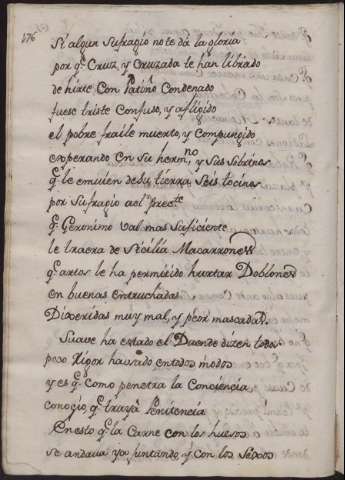 176
Si algun Sufragio no te da la gloria
por q.e Cruz, y Cruzada te han librado
de hirte Con Patiño Condenado
fuese triste Confuso, y afligido
el pobre fraile muerto, y Compungido
esperando En su herm.no y Sus Sobrinos
q.e le emuien de su tierra Seis tocinos
por Sufragio
q.e Geronimo val mas Saficiente
le traera de Sicilia Macarrones
q.e artos le ha permitido hurtar Doblones
en buenas entruchadas
Dixeridas muy mal, y peor mascadas.
Suave ha estado el Duende dizen todos
pero Rigor ha usado en todos modos
y es q.e Como penetra la Conciencia
conozio q.e traya Penitencia
En esto q.e la Carne con los huesos
se andaua ya juntando, y Con los Sesos